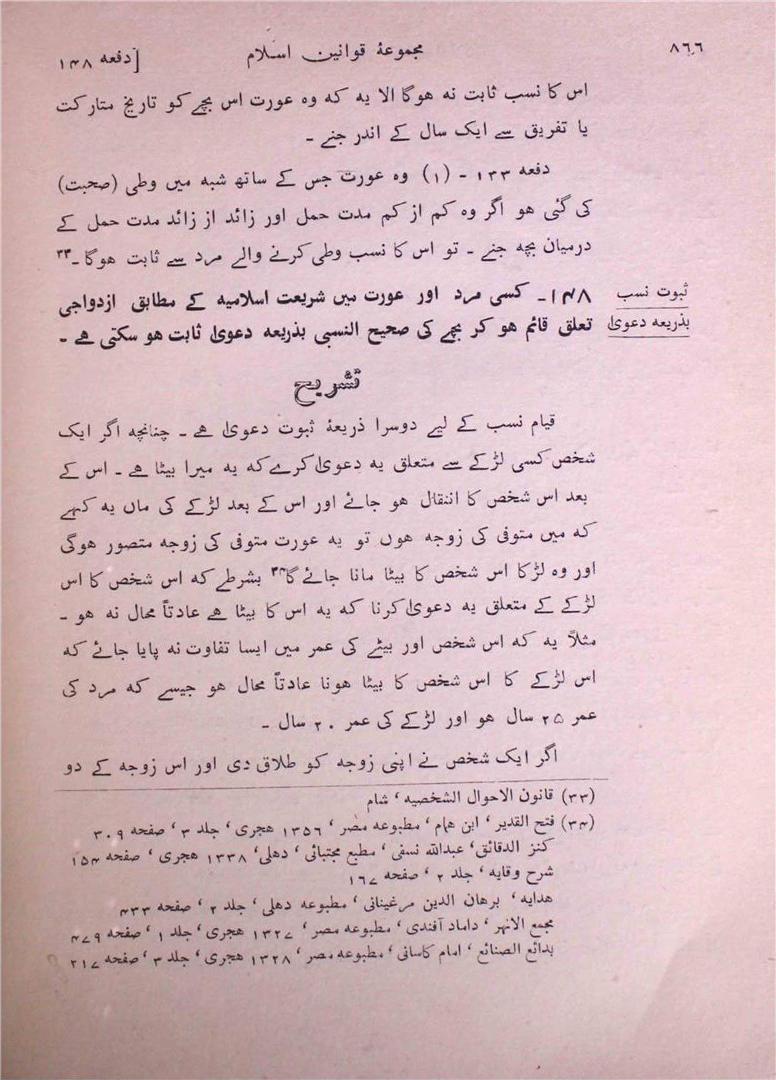 ۸۶۶ مجموعۂ قوانین اسلام [دفعہ ۱۴۸
اس کا نسب ثابت نہ ہوگا الا یہ کہ وہ عورت اس بچے کو تاریخ متارکت
یا تفریق سے ایک سال کے اندر جنے ۔
دفعہ ۱۳۳ ۔ (۱) وہ عورت جس کے ساتھ شبہ میں وطی (صحبت)
کی گئی ہو اگر وہ کم از کم مدت حمل اور زائد از زائد مدت حمل کے
درمیان بچہ جنے ۔ تو اس کا نسب وطی کرنے والے مرد سے ثابت ہوگا ۔۳۳
ثبوت نسب
بذریعہ دعویٰ
۱۴۸۔ کسی مرد اور عورت میں شریعت اسلامیہ کے مطابق ازدواجی
تعلق قائم ہو کر بچے کی صحیح النسبی بذریعہ دعویٰ ثابت ہو سکتی ہے ۔
تشریح
قیام نسب کے لیے دوسرا ذریعۂ ثبوت دعویٰ ہے ۔ چنانچہ اگر ایک
شخص کسی لڑکے سے متعلق یہ دعویٰ کرے کہ یہ میرا بیٹا ہے ۔ اس کے
بعد اس شخص کا انتقال ہو جائے اور اس کے بعد لڑکے کی ماں یہ کہے
کہ میں متوفی کی زوجہ ہوں تو یہ عورت متوفی کی زوجہ متصور ہوگی
اور وہ لڑکا اس شخص کا بیٹا مانا جائے گا۳۴ بشرطے کہ اس شخص کا اس
لڑکے کے متعلق یہ دعویٰ کرنا کہ یہ اس کا بیٹا ہے عادتاً محال نہ ہو ۔
مثلاً یہ کہ اس شخص اور بیٹے کی عمر میں ایسا تفاوت نہ پایا جائے کہ
اس لڑکے کا اس شخص کا بیٹا ہونا عادتاً محال ہو جیسے کہ مرد کی
عمر ۲۵ سال ہو اور لڑکے کی عمر ۲۰ سال ۔
اگر ایک شخص نے اپنی زوجہ کو طلاق دی اور اس زوجہ کے دو
(۳۳) قانون الاحوال الشخصیہ، شام
(۳۴) فتح القدیر، ابن ھمام، مطبوعہ مصر، ۱۳۵۶ ہجری، جلد ۳، صفحہ ۳۰۹
کنز الدقائق، عبداللہ نسفی، مطبع مجتبائی، دہلی، ۱۳۳۸ ہجری، صفحہ ۱۵۴
شرح وقایہ، جلد ۲، صفحہ ۱۶۷
ھدایہ، برھان الدین مرغینانی، مطبوعہ دہلی، جلد ۲، صفحہ ۴۳۳
مجمع الانہر، داماد آفندی، مطبوعہ مصر، ۱۳۲۷ ہجری، جلد ۱، صفحہ ۴۷۹
بدائع الصنائع، امام کاسانی، مطبوعہ مصر، ۱۳۲۸ ہجری، جلد ۳، صفحہ ۲۱۷